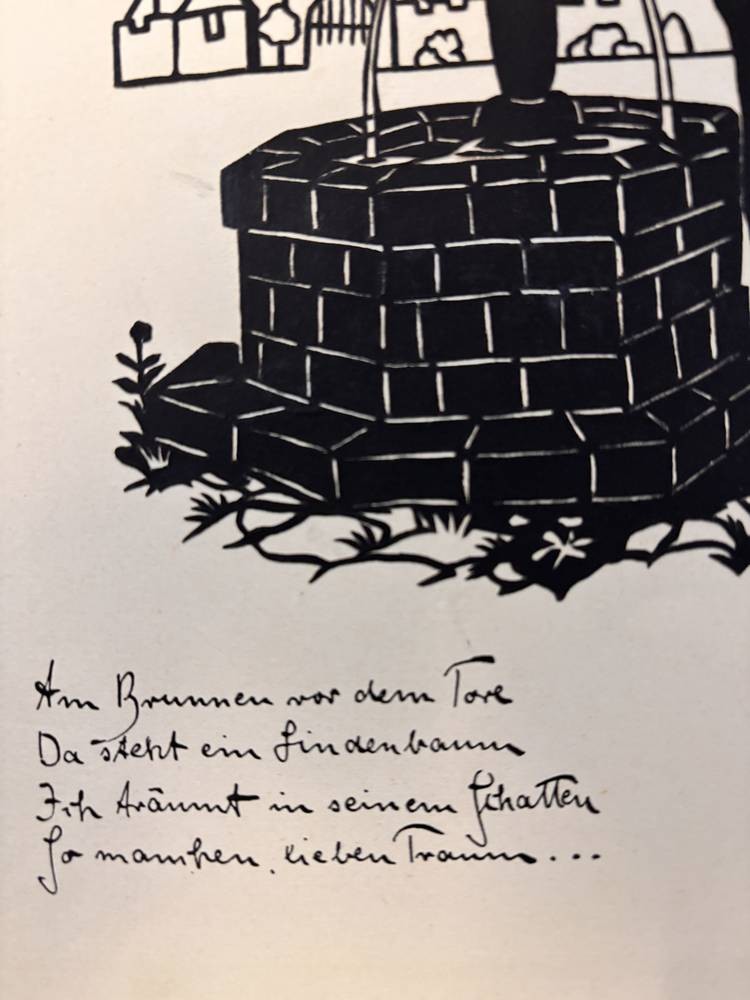 Am Brunnen vor dem Tore
Da steht ein Lindenbaum
Ich träumt in seinem Schatten
So manchen lieben Traum...